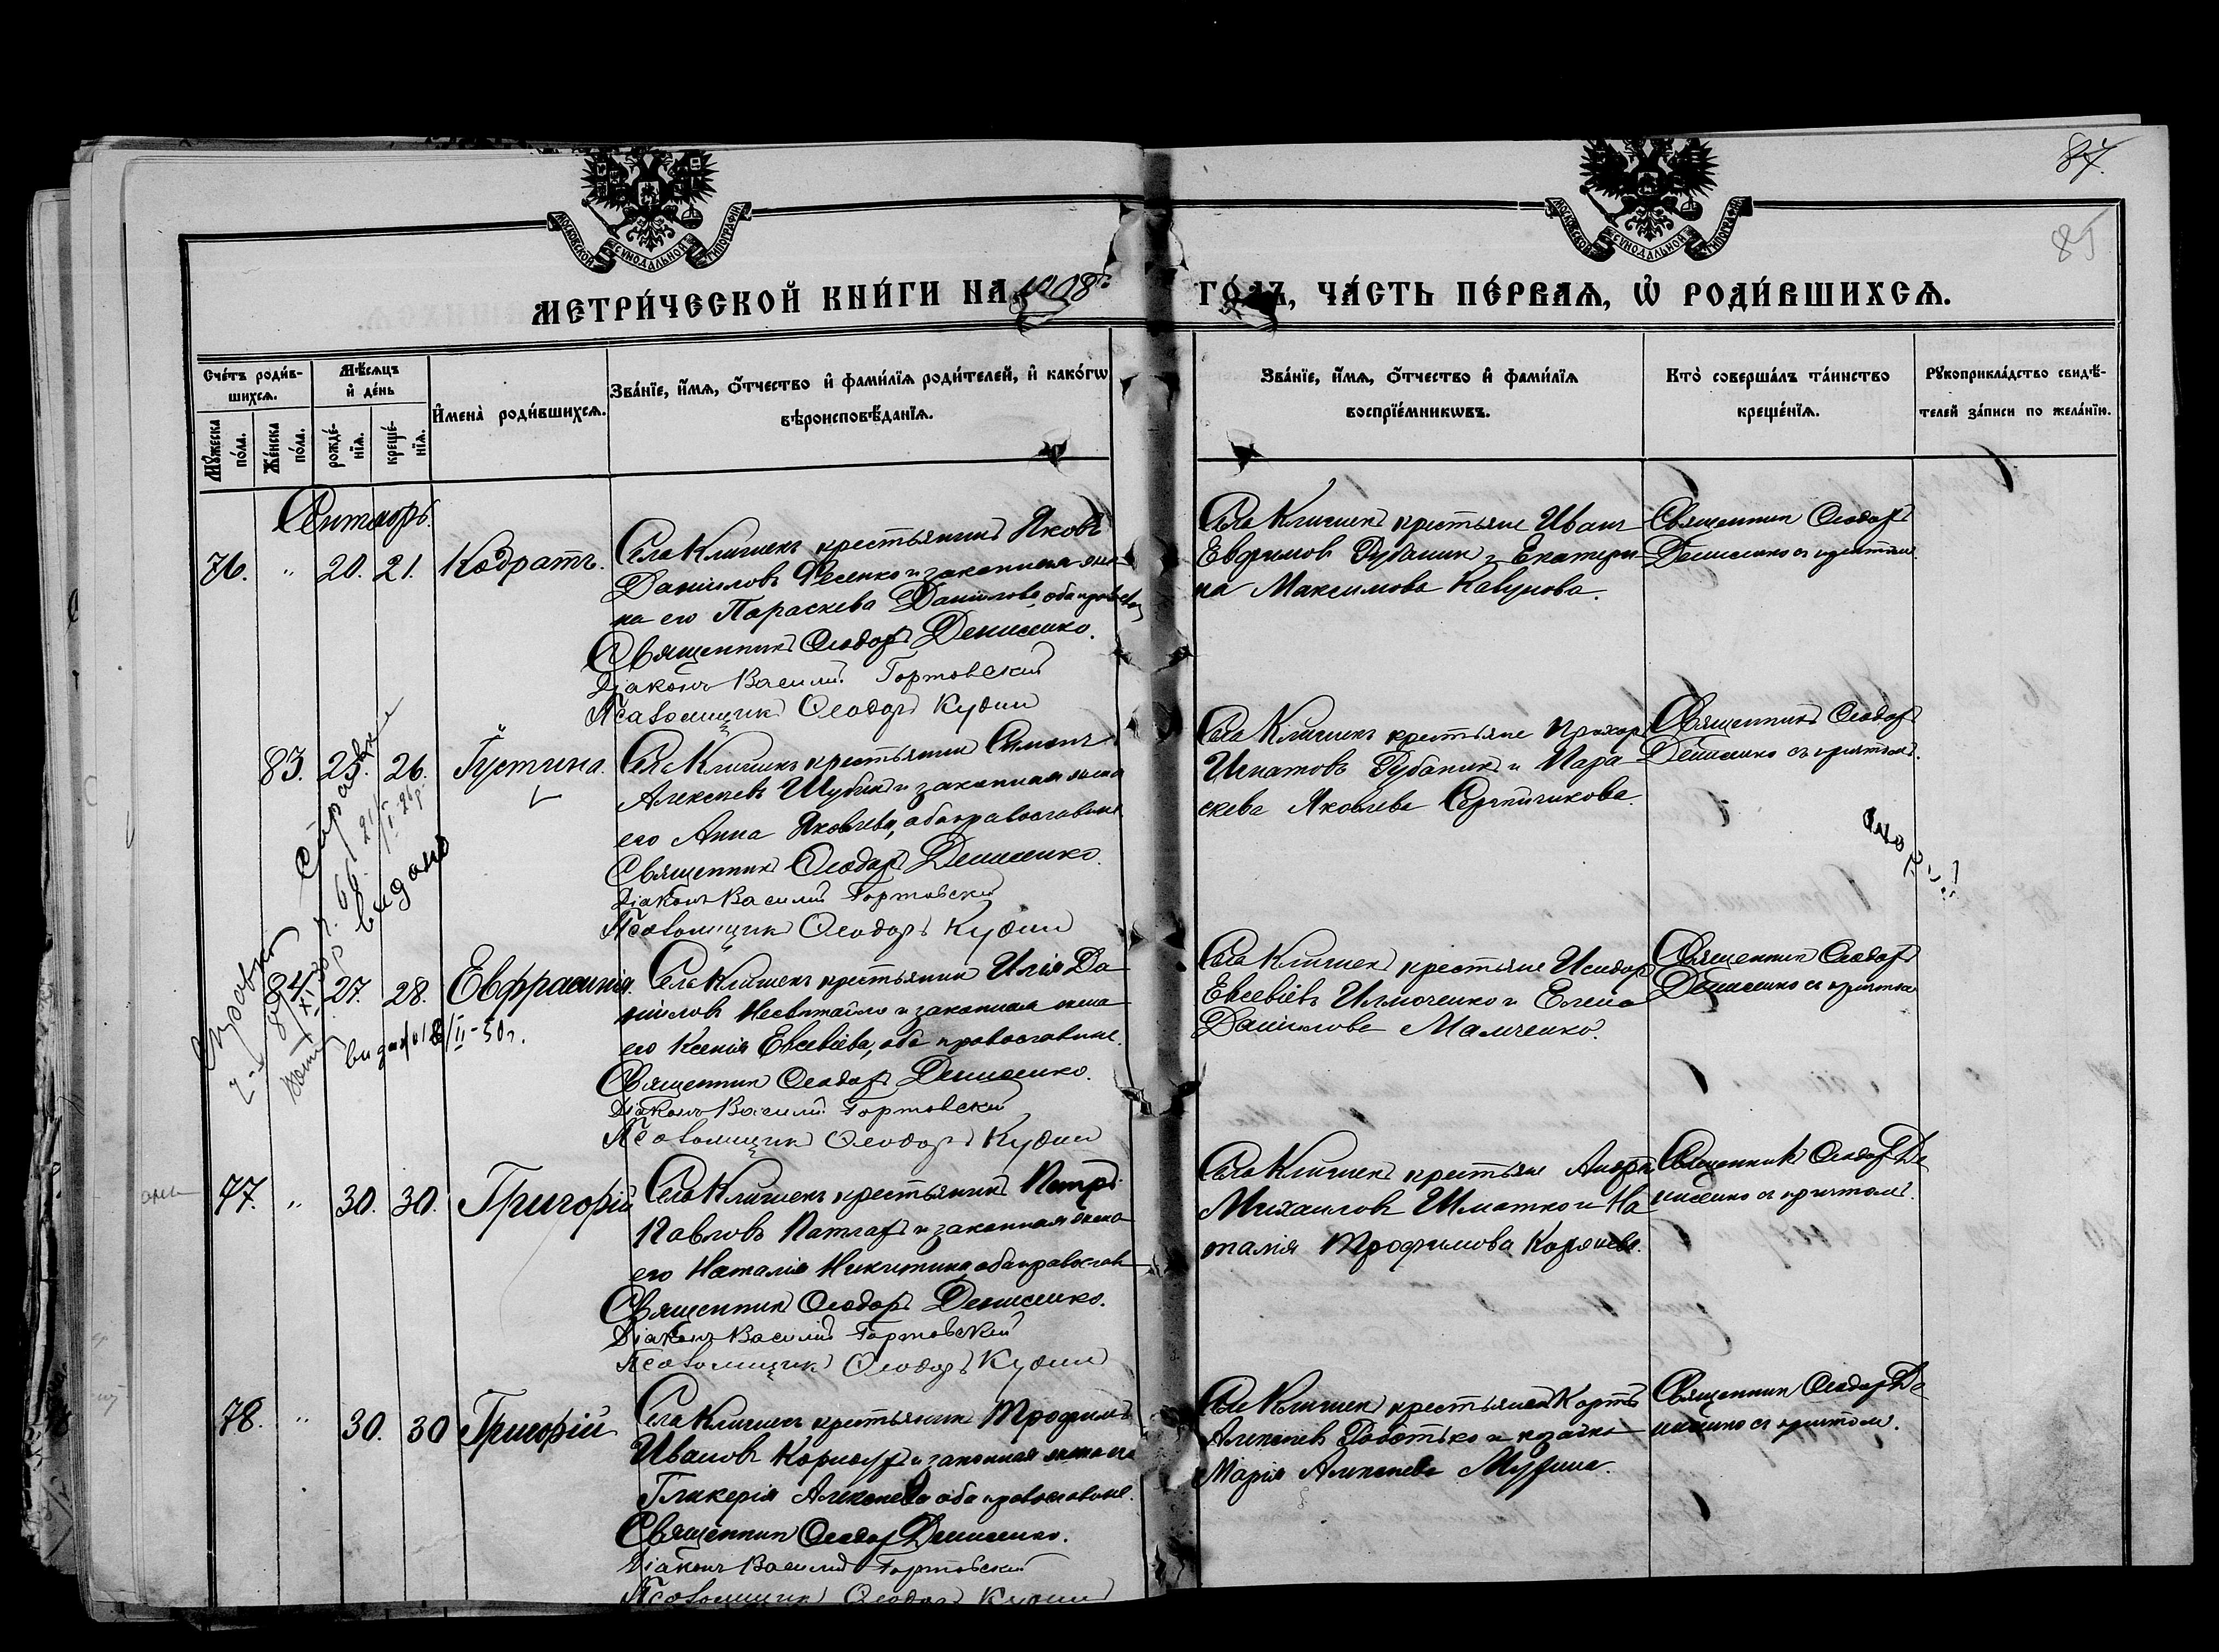 87.
85
МОСКОВСКОЙ СУНОДАЛЬНОЙ ТИПОГРАФІИ
МОСКОВСКОЙ СУНОДАЛЬНОЙ ТИПОГРАФІИ
МЕТРИ́ЧЕСКОЙ КНИ́ГИ НА 1908 ГО́ДЪ, ЧА́СТЬ ПЕ́РВАѦ, Ѡ҆ РОДИ́ВШИХСѦ.
Сче́тъ роди́в-
шихсѧ.
Мꙋ́жеска по́ла.
Же́нска по́ла.
Мѣ́сѧцъ
и҆ де́нь
рожде́-
нїѧ.
креще́-
нїѧ.
И҆мена̀ роди́вшихсѧ.
Зва́нїе, и҆́мѧ, ѻ҆́тчество и҆ фами́лїѧ роди́телей, и҆ како́гѡ
вѣроисповѣ́данїѧ.
Зва́нїе, и҆́мѧ, ѻ҆́тчество и҆ фами́лїѧ
воспрїе́мникѡвъ.
Кто̀ соверша́лъ та́инство
креще́нїѧ.
Рꙋкоприкла́дство свидѣ́-
телей за́писи по жела́нїю.
Сентябрь.
76. " 20. 21. Кодратъ.
Села Клишекъ крестьянинъ Яковъ
Даніиловъ Фесенко и законная же-
на его Параскева Даніилова, оба правосл
Священникъ Ѳеодоръ Денисенко.
Діаконъ Василій Гортовскій
Псаломщикъ Ѳеодоръ Кудин
Села Клишекъ крестьяне Иванъ
Евфимовъ Дубаник и Екатери-
на Максимова Кавунова.
Священник Ѳеодоръ
Денисенко съ причтом.
83. 25. 26. Іустина.
Села Клишекъ крестьянин Симонъ
Алексіевъ Шубик и законная жена
его Анна Яковлева, оба православные
Священникъ Ѳеодоръ Денисенко.
Діаконъ Василій Гортовскій
Псаломщикъ Ѳеодоръ Кудин
Села Клишекъ крестьяне Прохор
Игнатовъ Дубаник и Пара-
скева Яковлева
Священникъ Ѳеодоръ
Денисенко съ причтомъ.
84. 27. 28. Евфрасинія.
Села Клишекъ крестьянин Илія Да-
ніилов Несвитайло и законная жена
его Ксенія Евсевіева, оба православные.
Священник Ѳеодоръ Денисенко.
Діаконъ Василій Гортовскій
Псаломщикъ Ѳеодоръ Кудин
Села Клишекъ крестьяне Исидор
Евсевіевъ Ильюченко и Елена
Даніилова Мамченко.
Священник Ѳеодоръ
Денисенко съ причтом
видано 18/II-50г.
видано
77. " 30. 30. Григорій
Села Клишекъ крестьянинъ Петръ
Павловъ Патлах и законная жена
его Наталія Никитина, оба православ
Священник Ѳеодоръ Денисенко.
Діаконъ Василій Гортовскій
Псаломщикъ Ѳеодоръ Кудин
Села Клишекъ крестьяне Андрей
Михаиловъ Шматко и На-
талія Трофимова Коренева.
Священникъ Ѳеодоръ Де-
нисенко съ причтомъ.
78. " 30. 30 Григорій
Села Клишекъ крестьянин Трофимъ
Ивановъ Корноух и законная жена его
Гликерія Алексіева оба православные.
Священник Ѳеодоръ Денисенко.
Діаконъ Василій Гортовскій
Псаломщикъ Ѳеодоръ Кудин
Села Клишекъ крестьянин Карпъ
Алексіев и козачка
Марія Алексіева
Священник Ѳеодоръ Де-
нисенко съ причтом.